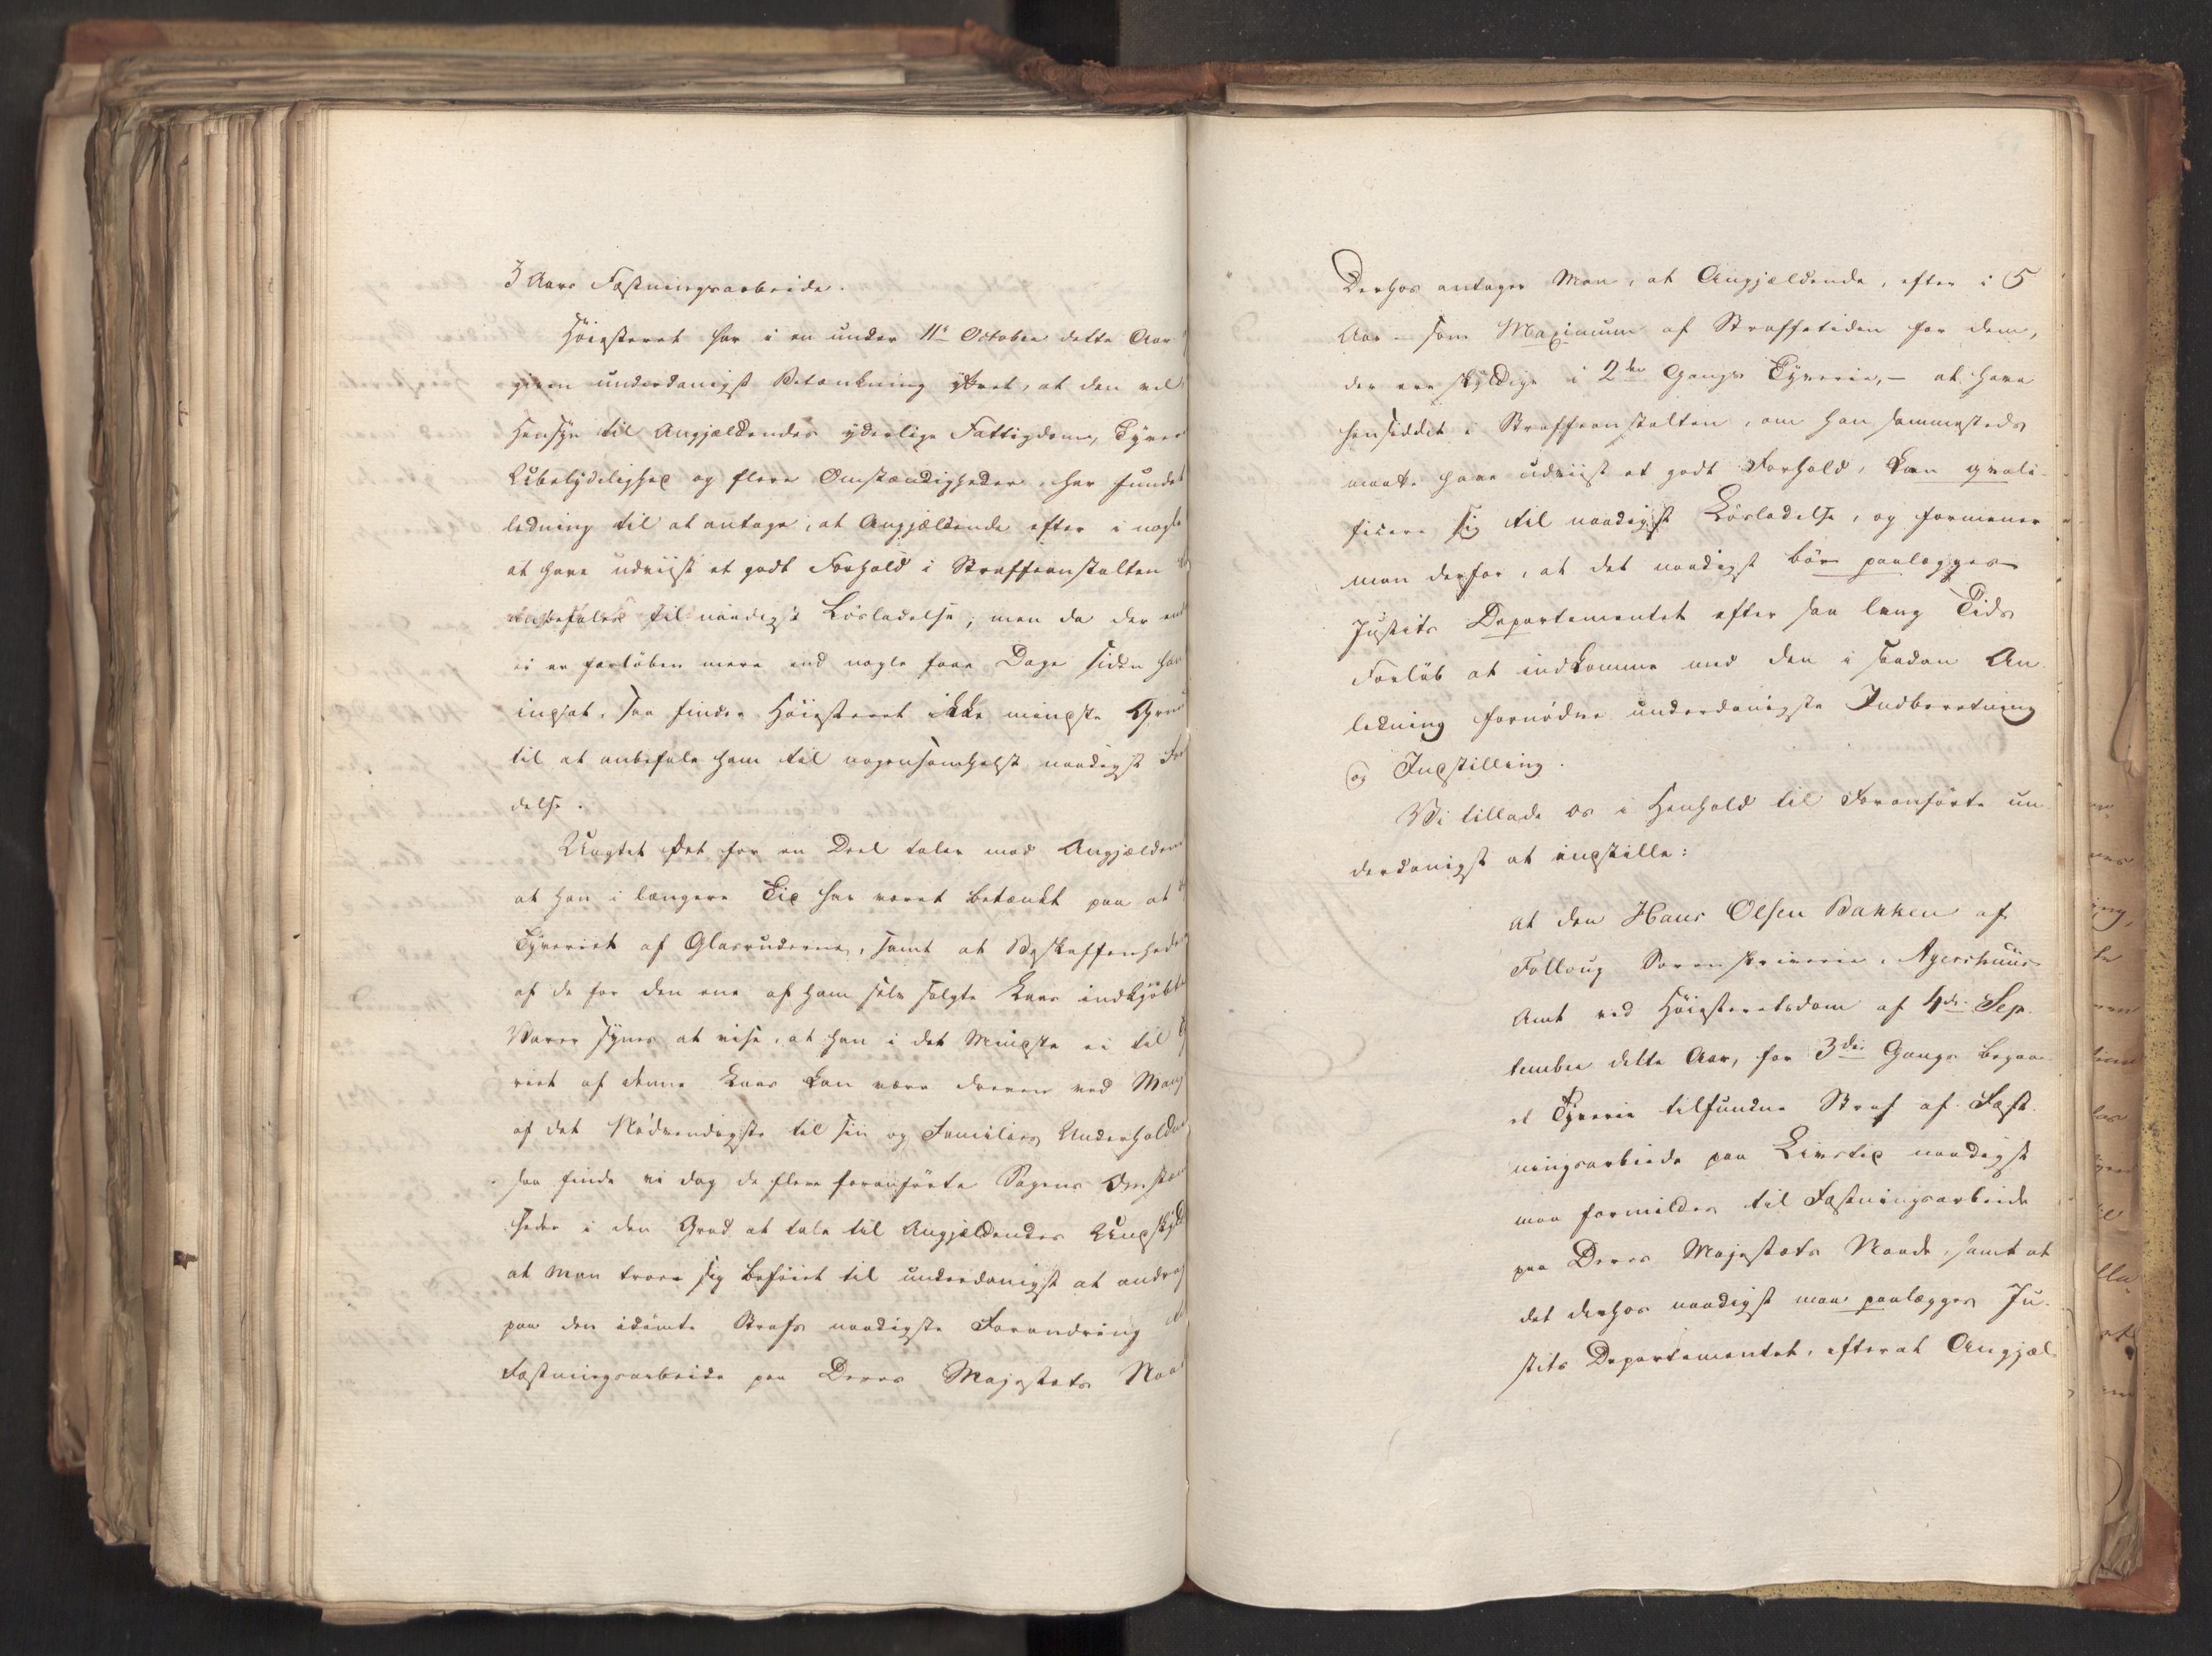 3 Aars Fæstningsarbeide.
Høiesteret har i en under 11te October dette Aar
given underdanigst Betænkning yttret, at den ved
Hensyn til Angjældendes yderlige Fattigdom, Tyve
Ubetydelighed og flere Omstændigheder, har fundet
ledning til at antage, at Angjældende efter i nogle
at have udviist et godt Forhold i Straffeanstalten
anbefales til naadigst Løsladelse; men da der end
ei er forløben mere end nogle faae Dage siden han
indsat, saa finder Høiesteret ikke mindste Grun
til at anbefale ham til nogensomhelst naadigst For
delse.
Uagtet det for en Deel taler mod Angjælden
at han i længere Tid har været betænkt paa at
Tyveriet af Glasruderne, samt at Beskaffenheden
af de for den ene af ham selv solgte Koer indkjøbte
Varer synes at vise, at han i det Mindste ei til
riet af denne Koe kan være dreven ved Mang
af det Nødvendigste til sin og Families Underholdn
saa finde vi dog de flere foranførte Sagens Omstæn
heder i den Grad at tale til Angjældendes Undskyld
at man troer sig beføiet til underdanigst at andrag
paa den idømte Strafs naadigste Forandring til
Fæstningsarbeide paa Deres Majestæts Naa
Derhos antager Man, at Angjældende, efter i 5
Aar - som Maximum af Straffetiden for dem,
der ere skyldige i 2den Gangs Tyverie, - at have
hensiddet i Straffeanstalten, om han sammesteds
maatte have udviist et godt Forhold, kan qvali-
ficere sig til naadigst Løsladelse, og formener
man derfor, at det naadigst bør paalægges
Justits Departementet efter saa lang Tids
Forløb at indkomme med den i saadan An-
ledning fornødne underdanigste Indberetning
og Indstilling.
Vi tillade os i Henhold til Foranførte un-
derdanigst at indstille:
at den Hans Olsen Bakken af
Folloug Sorenskriverie, Agershuus
Amt ved Høiesteretsdom af 4de Sep-
tember dette Aar, for 3die Gangs begaa-
et Tyverie tilfundne Straf af Fæst-
ningsarbeide paa Livstid naadigst
maa formildes til Fæstningsarbeide
paa Deres Majestæts Naade, samt at
det derhos naadigst maa paalægges Ju-
stits Departementet, efterat Angjæl-